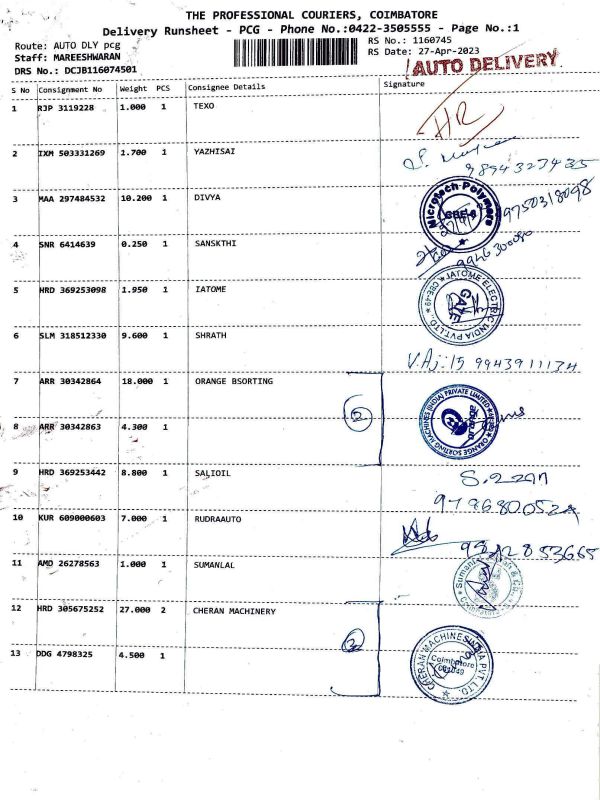 THE PROFESSIONAL COURIERS, COIMBATORE
Delivery Runsheet - PCG - Phone No.:0422-3505555 - Page No.:1
Route: AUTO DLY pcg
RS No.: 1160745
Staff: MAREESHWARAN
RS Date: 27-Apr-2023
DRS No.: DCJB116074501
AUTO DELIVERY
S No Consignment No Weight PCS Consignee Details Signature
1 RJP 3119228 1.000 1 TEXO
HR
2 IXM 503331269 1.700 1 YAZHISAI
9894323435
3 MAA 297484532 10.200 1 DIVYA
Microtech Polymers
CBE-6
9750318098
4 SNR 6414639 0.250 1 SANSKTHI
5 HRD 369253098 1.950 1 IATOME
JATOME ELECTRIC INDIA PVT.LTD. CBE-49
GATE
6 SLM 318512330 9.600 1 SHRATH
V.Aj:15 9943911134
7 ARR 30342864 18.000 1 ORANGE BSORTING
2
ORANGE SORTING MACHINES (INDIA) PRIVATE LIMITED
8 ARR 30342863 4.300 1
9 HRD 369253442 8.800 1 SALIOIL
10 KUR 609000603 7.000 1 RUDRAAUTO
9842853665
11 AMD 26278563 1.000 1 SUMANLAL
12 HRD 305675252 27.000 2 CHERAN MACHINERY
13 DDG 4798325 4.500 1
CHERAN MACHINES INDIA PVT. LTD.
Coimbatore
641049